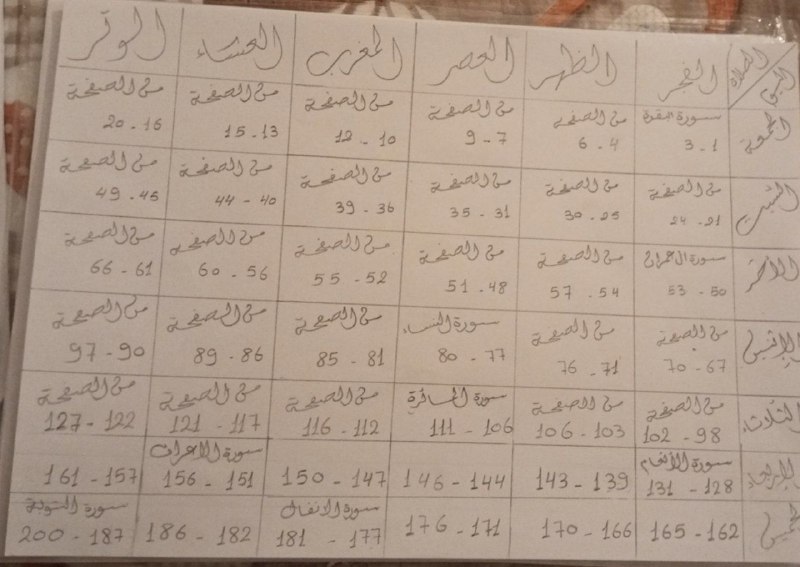 الصلاة اليوم الفجر الظهر العصر المغرب العشاء الوتر
الجمعة سورة البقرة من الصفحة من الصفحة من الصفحة من الصفحة من الصفحة
3 - 1 6 - 4 9 - 7 12 - 10 15 - 13 20 - 16
السبت من الصفحة من الصفحة من الصفحة من الصفحة من الصفحة من الصفحة
24 - 21 30 - 25 35 - 31 39 - 36 44 - 40 49 - 45
الأحد سورة ال عمران من الصفحة من الصفحة من الصفحة من الصفحة من الصفحة
53 - 50 57 - 54 51 - 48 55 - 52 60 - 56 66 - 61
الإثنين من الصفحة من الصفحة سورة النساء من الصفحة من الصفحة من الصفحة
70 - 67 76 - 71 80 - 77 85 - 81 89 - 86 97 - 90
الثلوثاء من الصفحة من الصفحة سورة المائدة من الصفحة من الصفحة من الصفحة
102 - 98 106 - 103 111 - 106 116 - 112 121 - 117 127 - 122
الإربعاء سورة الأنعام سورة الأعراف
131 - 128 143 - 139 146 - 144 150 - 147 156 - 151 161 - 157
الخميس سورة الانفال سورة التوبة
165 - 162 170 - 166 176 - 171 181 - 177 186 - 182 200 - 187